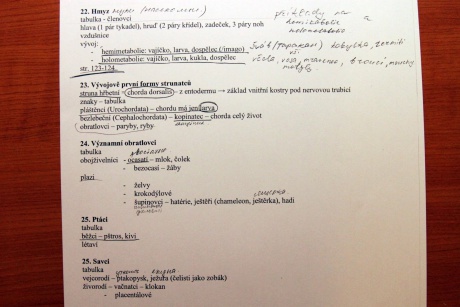 22. Hmyz
tabulka - členovci
hlava (1 pár tykadel), hruď (2 páry křídel), zadeček, 3 páry noh
vzdušnice
vývoj:
- hemimetabolie: vajíčko, larva, dospělec (/imago)
- holometabolie: vajíčko, larva, kukla, dospělec
str. 123-124
příklady na
hemimetabola a
švábi
včela, vosa, mravenec, brouci, mouchy
motýli
23. Vývojově první formy strunatců
struna hřbetní = chorda dorsalis) – z entodermu → základ vnitřní kostry pod nervovou trubicí
znaky – tabulka
pláštěnci (Urochordata) – chordu má jen larva
bezlebeční (Cephalochordata) – kopinatec – chorda celý život
obratlovci – paryby, ryby
24. Významní obratlovci
tabulka
obojživelníci - ocasatí – mlok, čolek
- bezocasí – žáby
plazi
- želvy
- krokodýlové
- šupinovci – hatérie, ještěři (chameleon, ještěrka), hadi
25. Ptáci
tabulka
běžci – pštros, kivi
létaví
25. Savci
tabulka
vejcorodí – ptakopysk, ježura (čelisti jako zobák)
živorodí – vačnatci – klokan
- placentálové